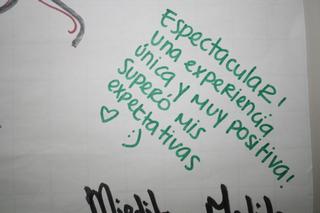 EspectaculAR!
una experiencia
única y muy positiva!
Superó mis
expectativas
♡ :)